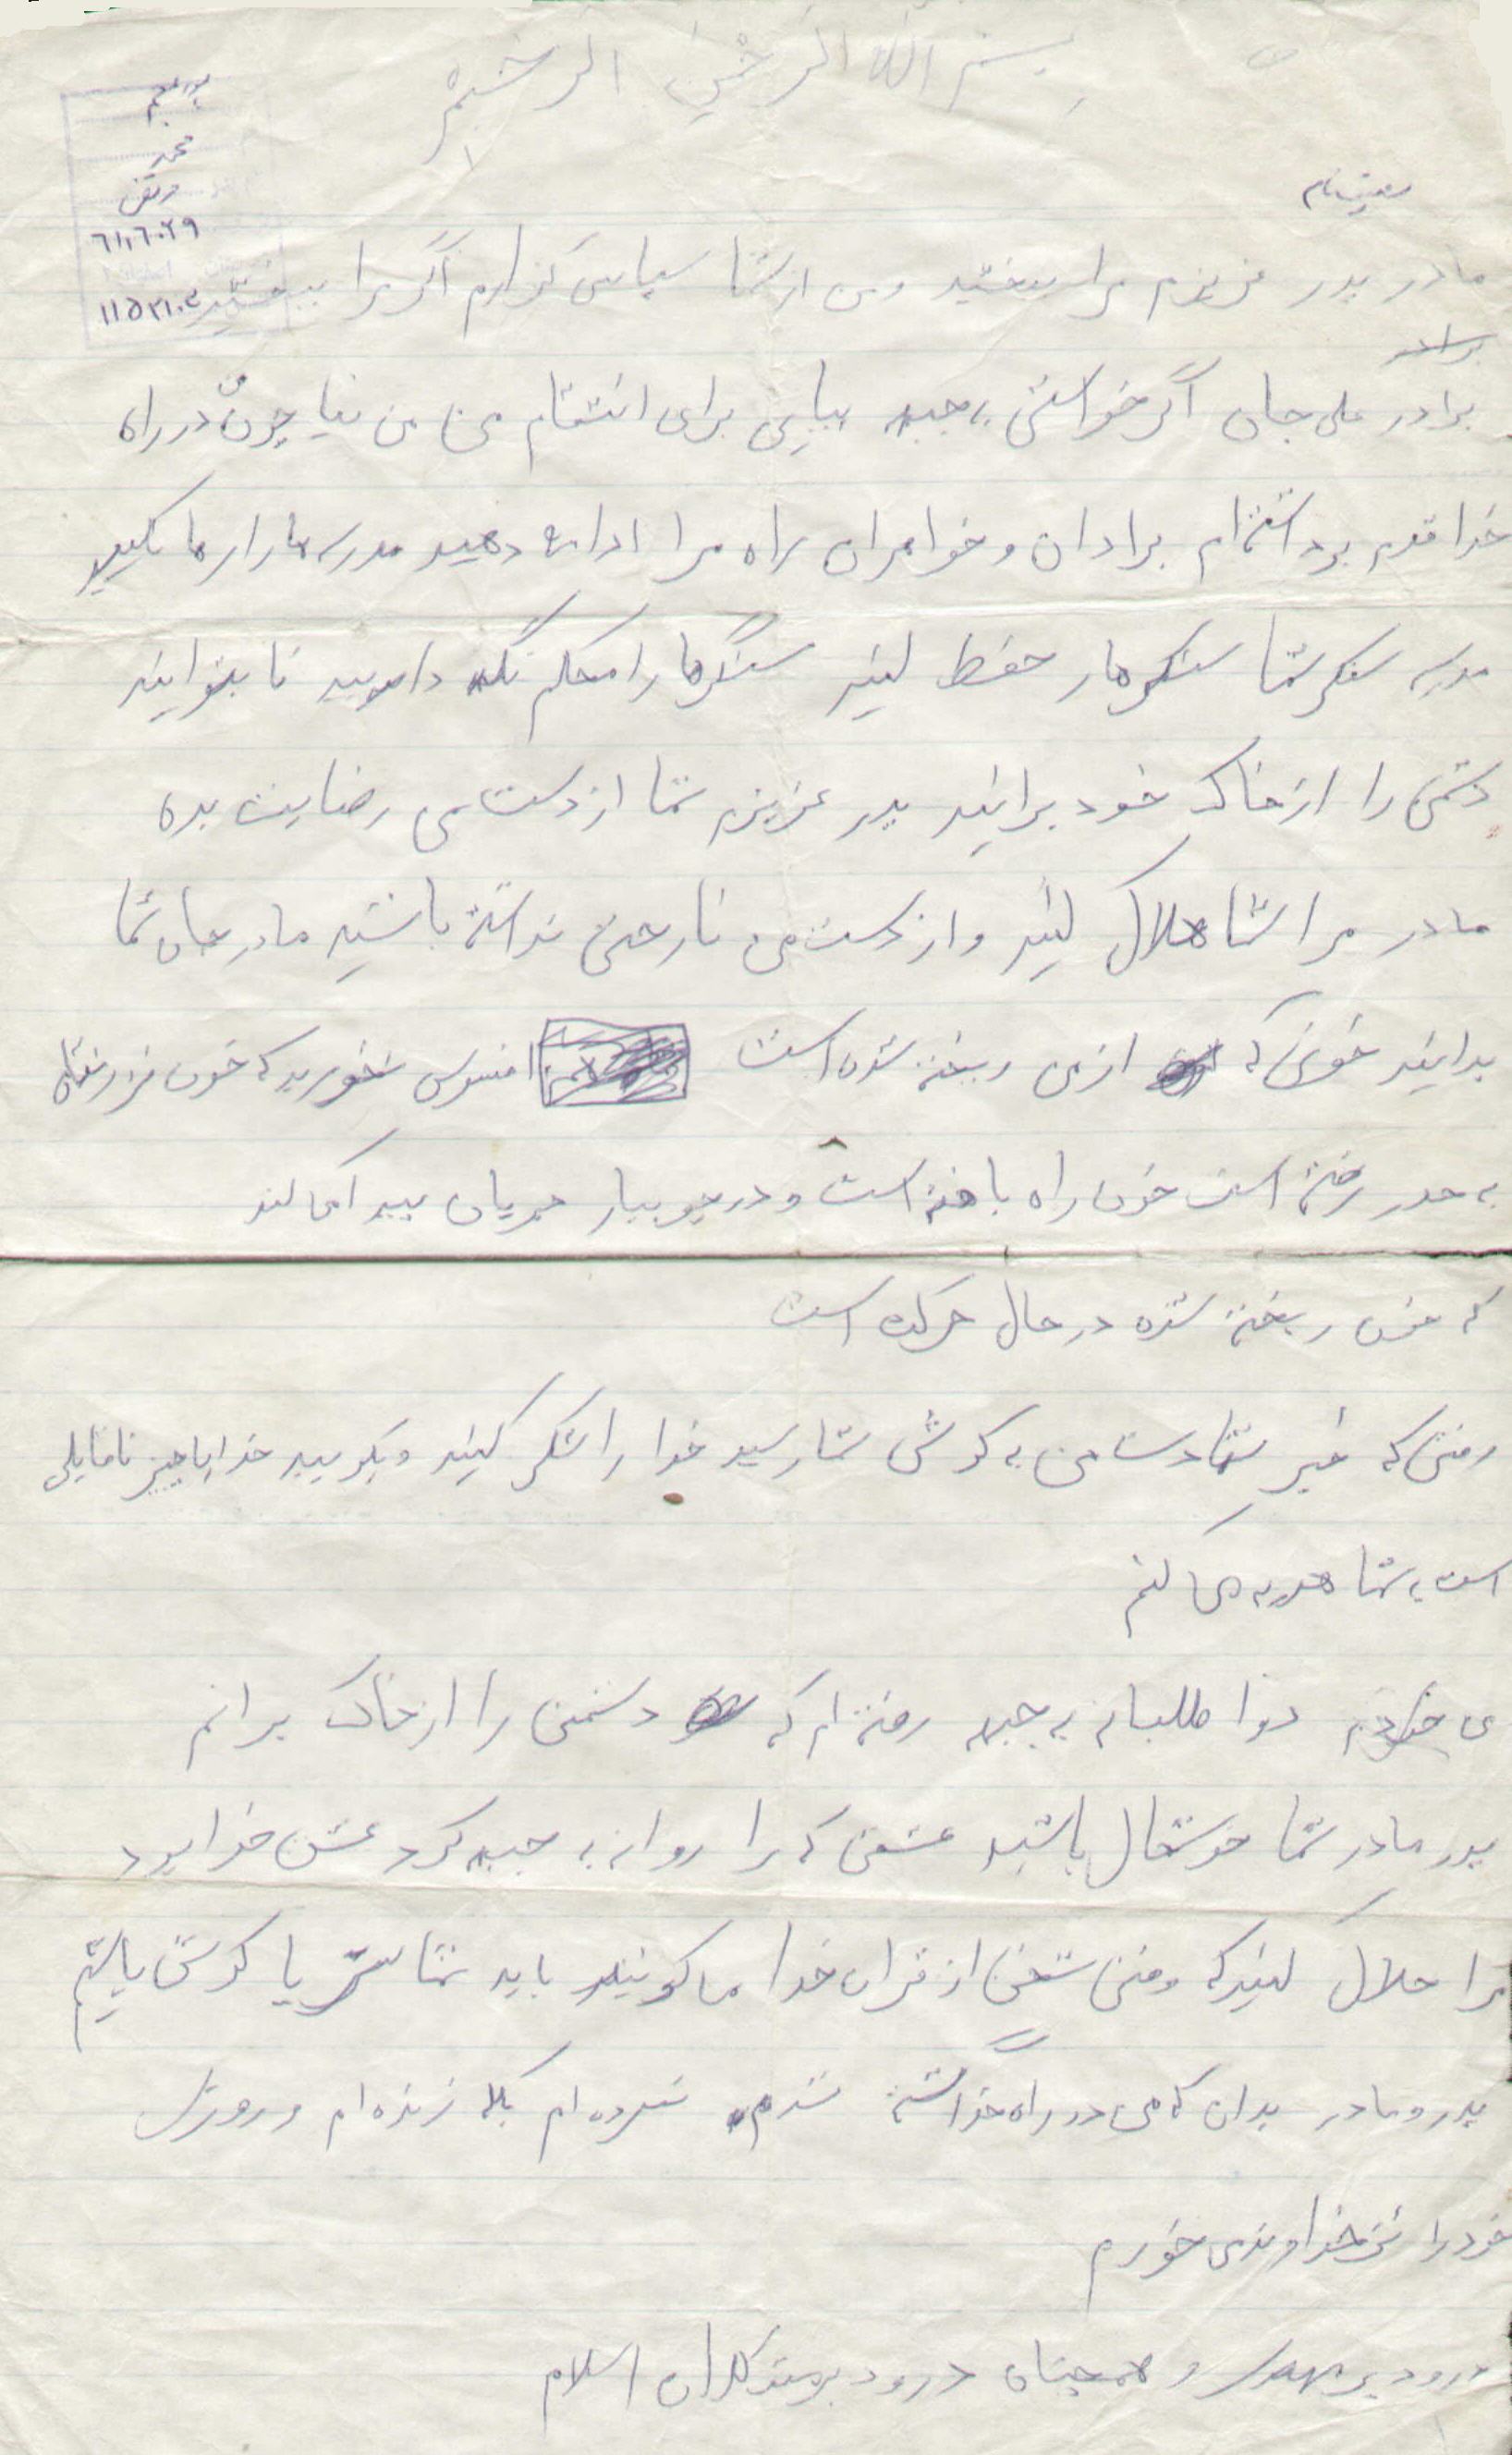 بسم الله الرحمن الرحیم
محمد
مرتضی
مادر پدر عزیزم مرا ببخشید ومن از شما سپاس گزارم اگر مرا ببخشید
برادر علی جان اگر خواستی به جبهه بیایی برای انتقام من نیا چون من در راه
خدا قدم برداشته‌ام برادان و خواهران راه مرا ادامه دهید مدرسه ها را رها نکنید
مدرسه سنگر شما سنگرها ر حفظ کنید سنگرها را محکم نگه دارید تا بتوانید
دشمن را از خاک خود برانید پدر عزیزم شما از دست من رضایت بده
مادر مرا شما هلال کنید و از دست من ناراحتی نداشته باشید مادر جان شما
بدانید خونی که از من ریخته شده است افسوس نخورید که خون فرزندتان
به هدر رفته است خون راه یافته است و در جویبار جریان پیدا می کند
که خون ریخته شده در حال حرکت است
وقتی که خبر شهادت من به گوش شما رسید خدا را شکر کنید و بگویید خدایا چیز ناقابلی
است به شما هدیه می کنم
من خودم دواطلبانه به جبهه رفته ام که دشمن را از خاک برانم
پدر مادر شما خوشحال باشید عشقی که مرا روانه به جبهه کرد عشق خدا بود
مرا حلال کنید که وقتی سخن از قران خدا می گویند باید شما سر پا گوش باشیم
پدر و مادر بدان که من در راه خدا کشته شدم نمرده ام بلکه زنده ام و روزی
خود را نزد خداوند می خورم
درود بر مهدی و همچنان درود بر رزمندگان اسلام